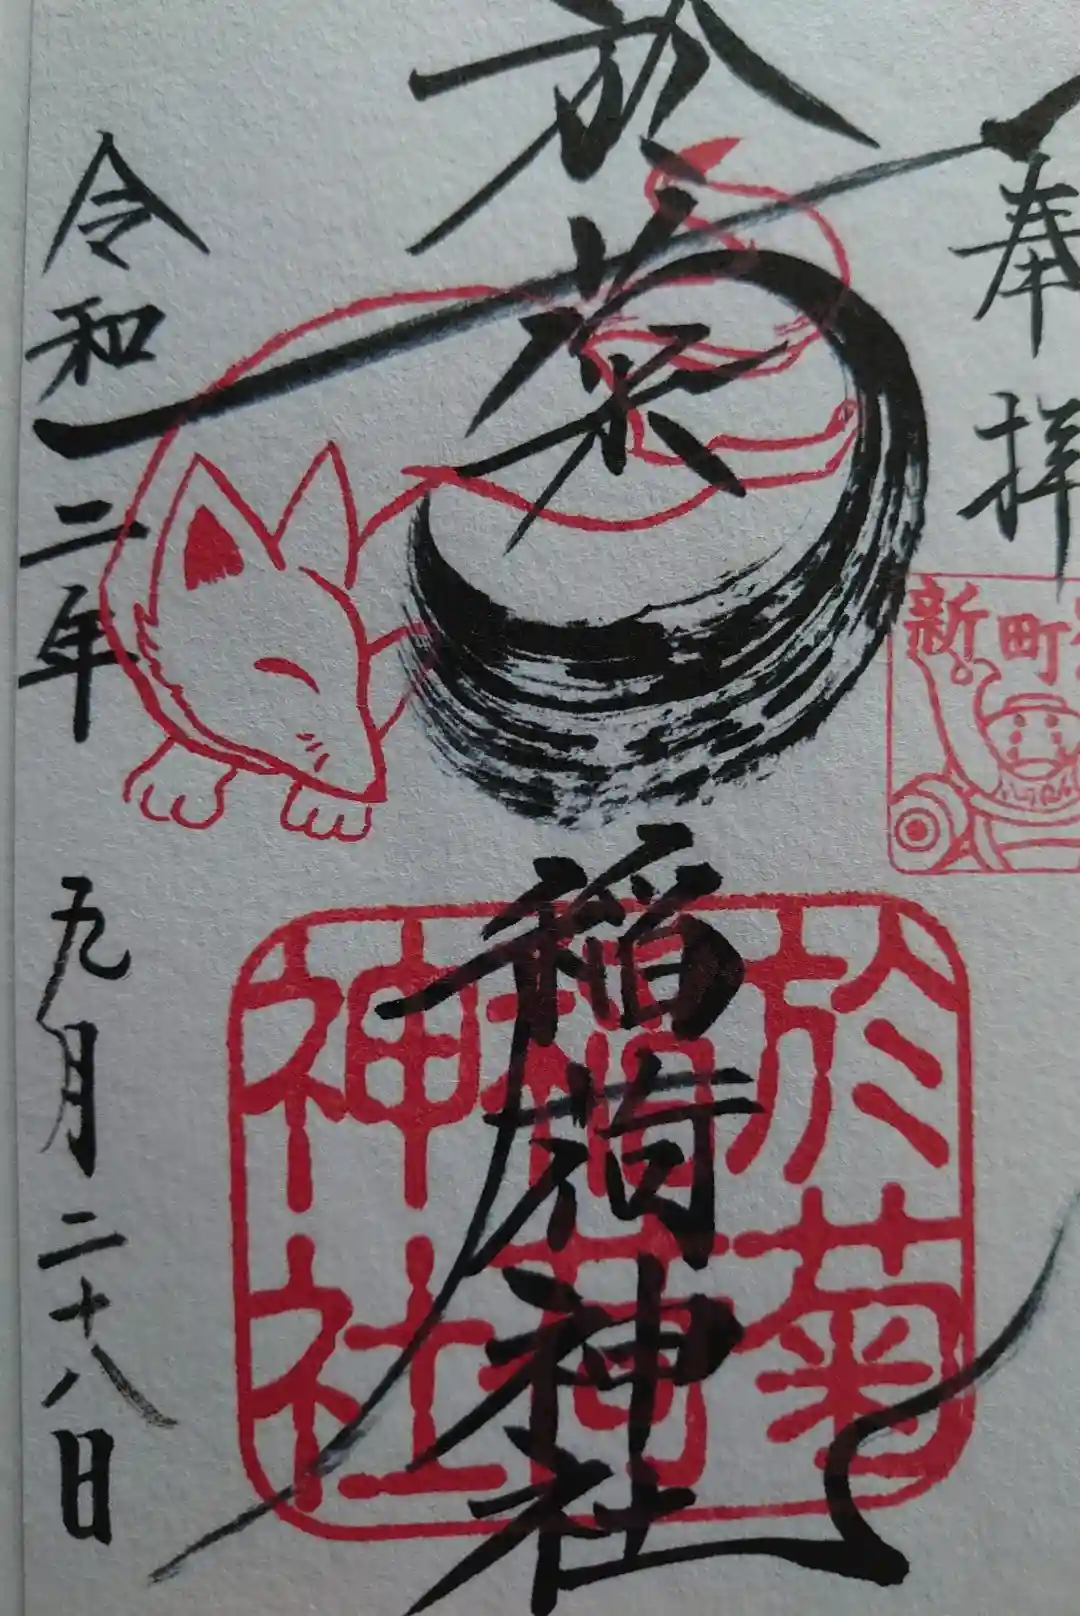 奉拝
新町
於菊稲荷神社
於菊
稲荷
神社
令和二年 九月二十八日